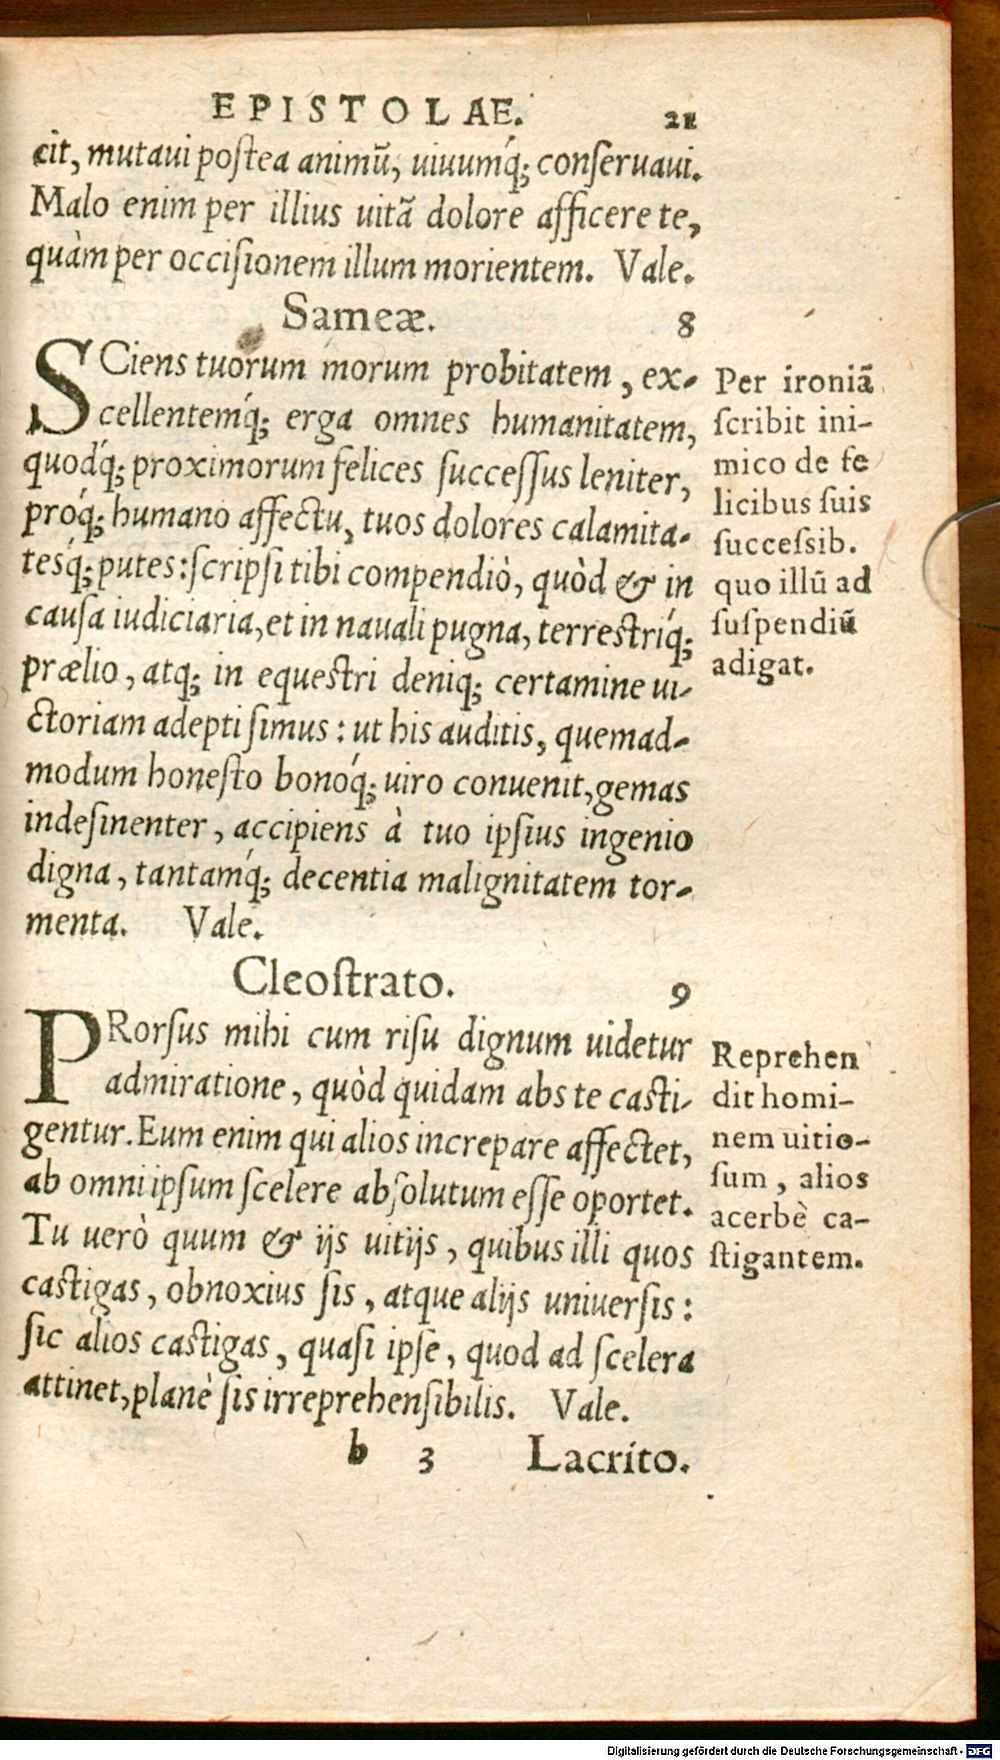 EPISTOLAE. 21
cit, mutaui poſtea animū, uiuumq́; conſeruaui.
Malo enim per illius uitā dolore afficere te,
quàm per occiſionem illum morientem. Vale.
Sameæ. 8
SCiens tuorum morum probitatem, ex-
cellentemq́; erga omnes humanitatem,
quodq́; proximorum felices ſucceſſus leniter,
proq́; humano affectu, tuos dolores calamita-
tesq́; putes: ſcripſi tibi compendiò, quòd & in
cauſa iudiciaria, et in nauali pugna, terreſtriq́;
prælio, atq; in equeſtri deniq; certamine ui-
ctoriam adepti ſimus: ut his auditis, quemad-
modum honeſto bonoq́; uiro conuenit, gemas
indeſinenter, accipiens à tuo ipſius ingenio
digna, tantamq́; decentia malignitatem tor-
menta. Vale.
Per ironiā
ſcribit ini-
mico de fe
licibus ſuis
ſucceſsib.
quo illū ad
ſuſpendiū
adigat.
Cleoſtrato. 9
PRorſus mihi cum riſu dignum uidetur
admiratione, quòd quidam abs te caſti-
gentur. Eum enim qui alios increpare affectet,
ab omni ipſum ſcelere abſolutum eſſe oportet.
Tu uerò quum & ijs uitijs, quibus illi quos
caſtigas, obnoxius ſis, atque alijs uniuerſis:
ſic alios caſtigas, quaſi ipſe, quod ad ſcelera
attinet, planè ſis irreprehenſibilis. Vale.
Reprehen
dit homi-
nem uitio-
ſum, alios
acerbè ca-
ſtigantem.
b 3 Lacrito.
Digitalisierung gefördert durch die Deutsche Forschungsgemeinschaft - DFG